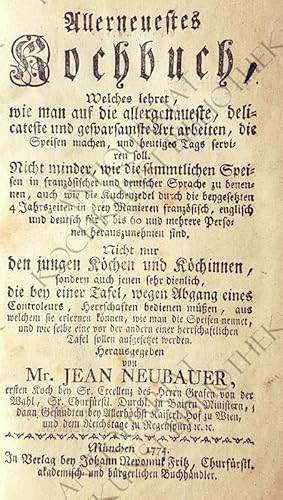 Allerneuestes
Kochbuch,
Welches lehret,
wie man auf die allergenaueste, deli-
cateste und gesparsamste Art arbeiten, die
Speisen machen, und heutiges Tags servi-
ren soll.
Nicht minder, wie die sämmtlichen Spei-
sen in französischer und deutscher Sprache zu benen-
nen, auch wie die Kuchenzedel durch die beygesetzten
4 Jahrszeiten in drey Manieren französisch, englisch
und deutsch für 8 bis 60 und mehrere Perso-
nen herauszunehmen sind.
Nicht nur
den jungen Köchen und Köchinnen,
sondern auch jenen sehr dienlich,
die bey einer Tafel, wegen Abgang eines
Controleurs, Herrschaften bedienen müßen, aus
welchem sie erlernen können, wie man die Speisen nennet,
und wie selbe eine vor der andern einer herrschaftlichen
Tafel sollen aufgesetzet werden.
Herausgegeben
von
Mr. JEAN NEUBAUER,
ersten Koch bey Sr. Excellenz des Herrn Grafen von der
Wahl, Sr. Churfürstl. Durchl. in Baiern Ministern,
dann Gesandten bey Allerhöchst Kaiserl. Hof zu Wien,
und dem Reichstage zu Regenspurg ꝛc. ꝛc.
München 1774.
In Verlag bey Johann Nepomuk Fritz, Churfürstl.
akademisch- und bürgerlichen Buchhändler.